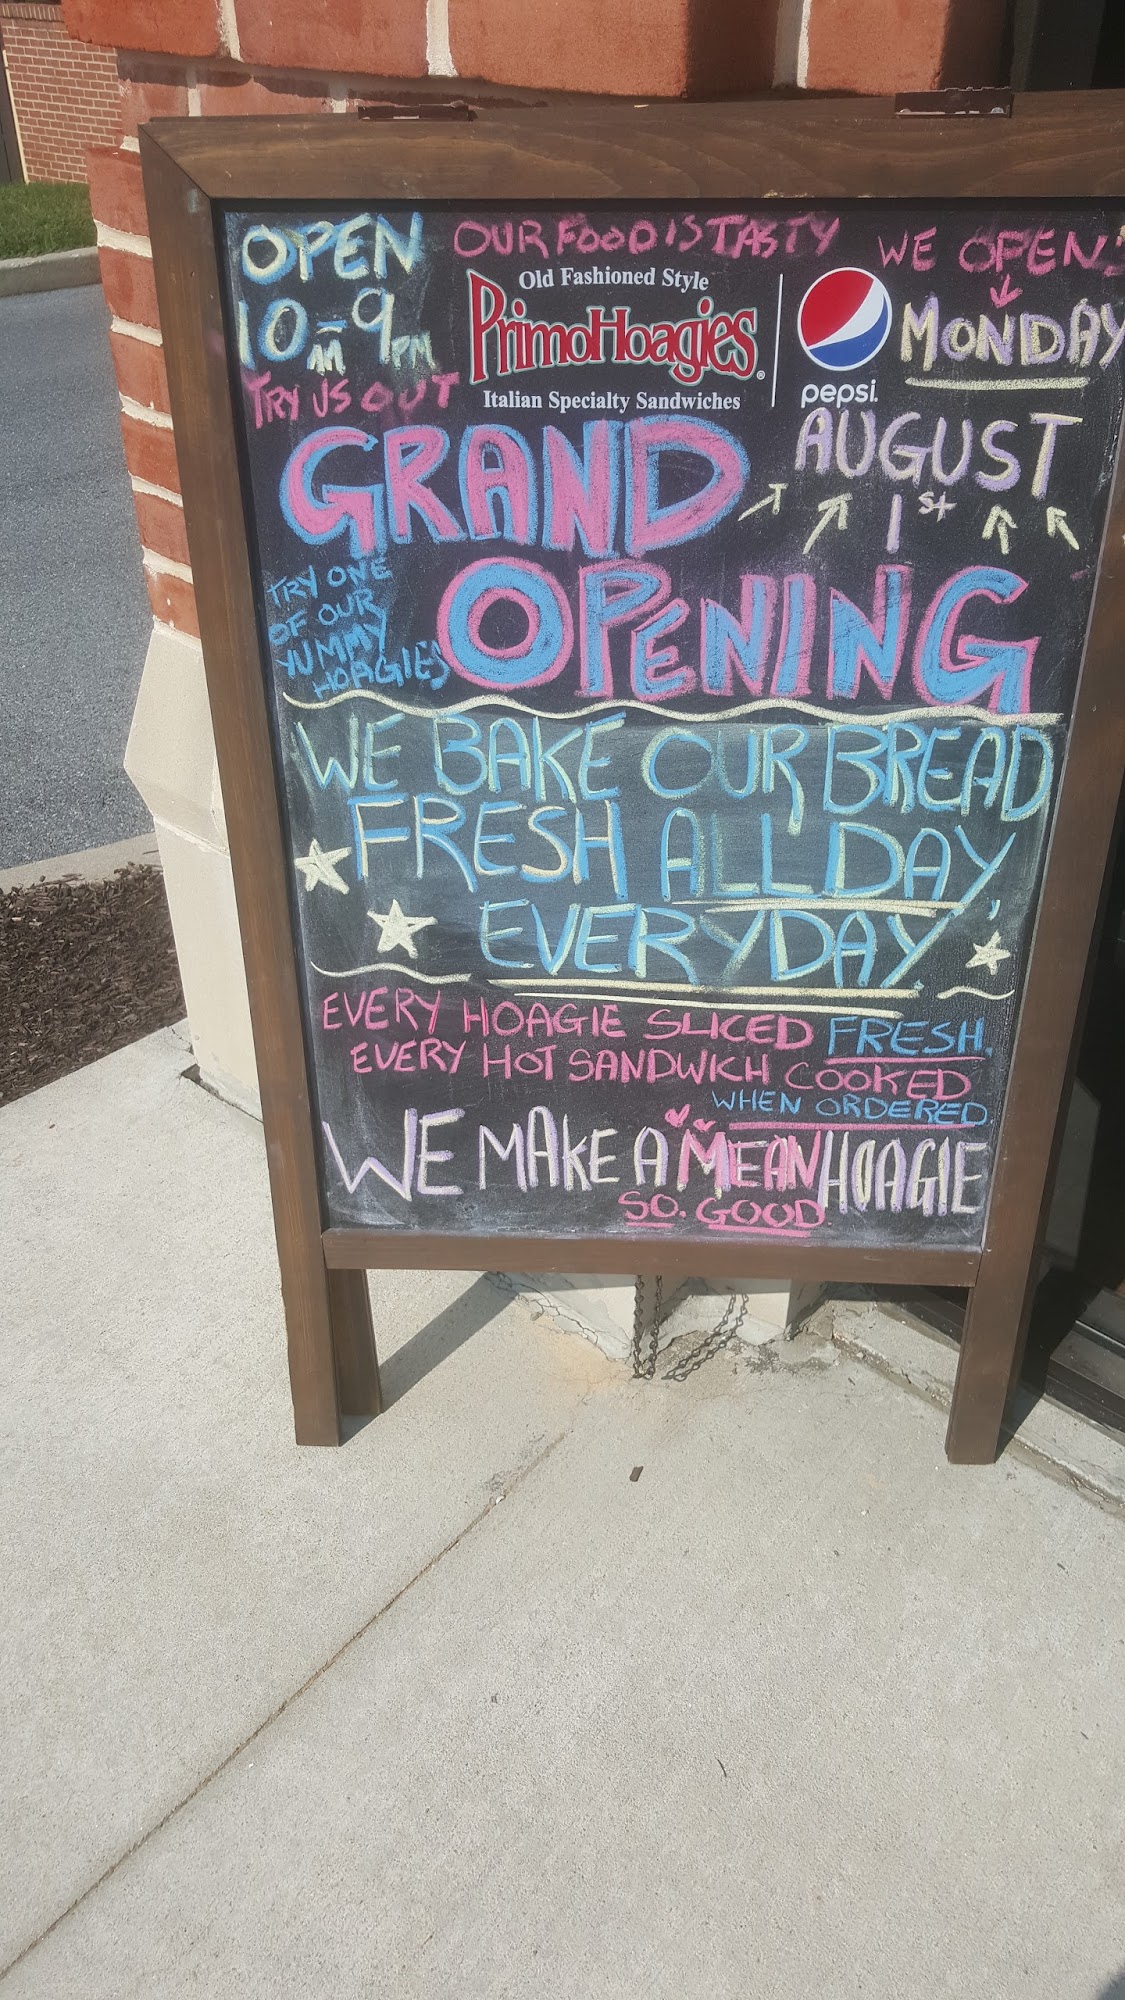 OPEN
10AM-9PM
TRY US OUT
OUR FOOD IS TASTY
Old Fashioned Style
PrimoHoagies®
Italian Specialty Sandwiches
pepsi.
WE OPEN:
MONDAY
AUGUST
1st
GRAND
OPENING
TRY ONE
OF OUR
YUMMY
HOAGIES
WE BAKE OUR BREAD
FRESH ALL DAY,
EVERYDAY.
EVERY HOAGIE SLICED FRESH.
EVERY HOT SANDWICH COOKED
WHEN ORDERED.
WE MAKE A MEAN HOAGIE
SO. GOOD.